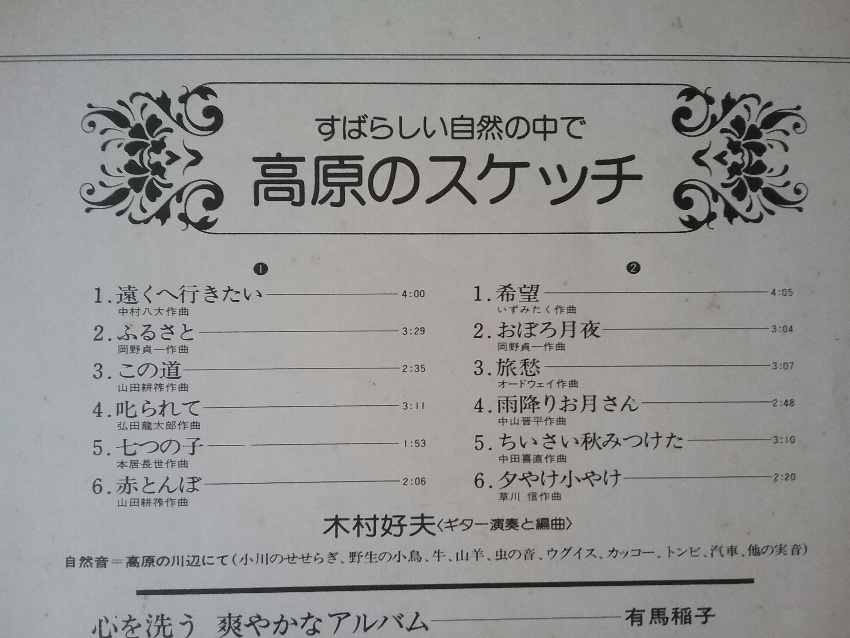 すばらしい自然の中で
高原のスケッチ
❶
1.遠くへ行きたい 4:00
中村八大作曲
2.ふるさと 3:29
岡野貞一作曲
3.この道 2:35
山田耕筰作曲
4.叱られて 3:11
弘田龍太郎作曲
5.七つの子 1:53
本居長世作曲
6.赤とんぼ 2:06
山田耕筰作曲
❷
1.希望 4:05
いずみたく作曲
2.おぼろ月夜 3:04
岡野貞一作曲
3.旅愁 3:07
オードウェイ作曲
4.雨降りお月さん 2:48
中山晋平作曲
5.ちいさい秋みつけた 3:10
中田喜直作曲
6.夕やけ小やけ 2:20
草川 信作曲
木村好夫〈ギター演奏と編曲〉
自然音=高原の川辺にて(小川のせせらぎ、野生の小鳥、牛、山羊、虫の音、ウグイス、カッコー、トンビ、汽車、他の実音)
心を洗う 爽やかなアルバム 有馬稲子